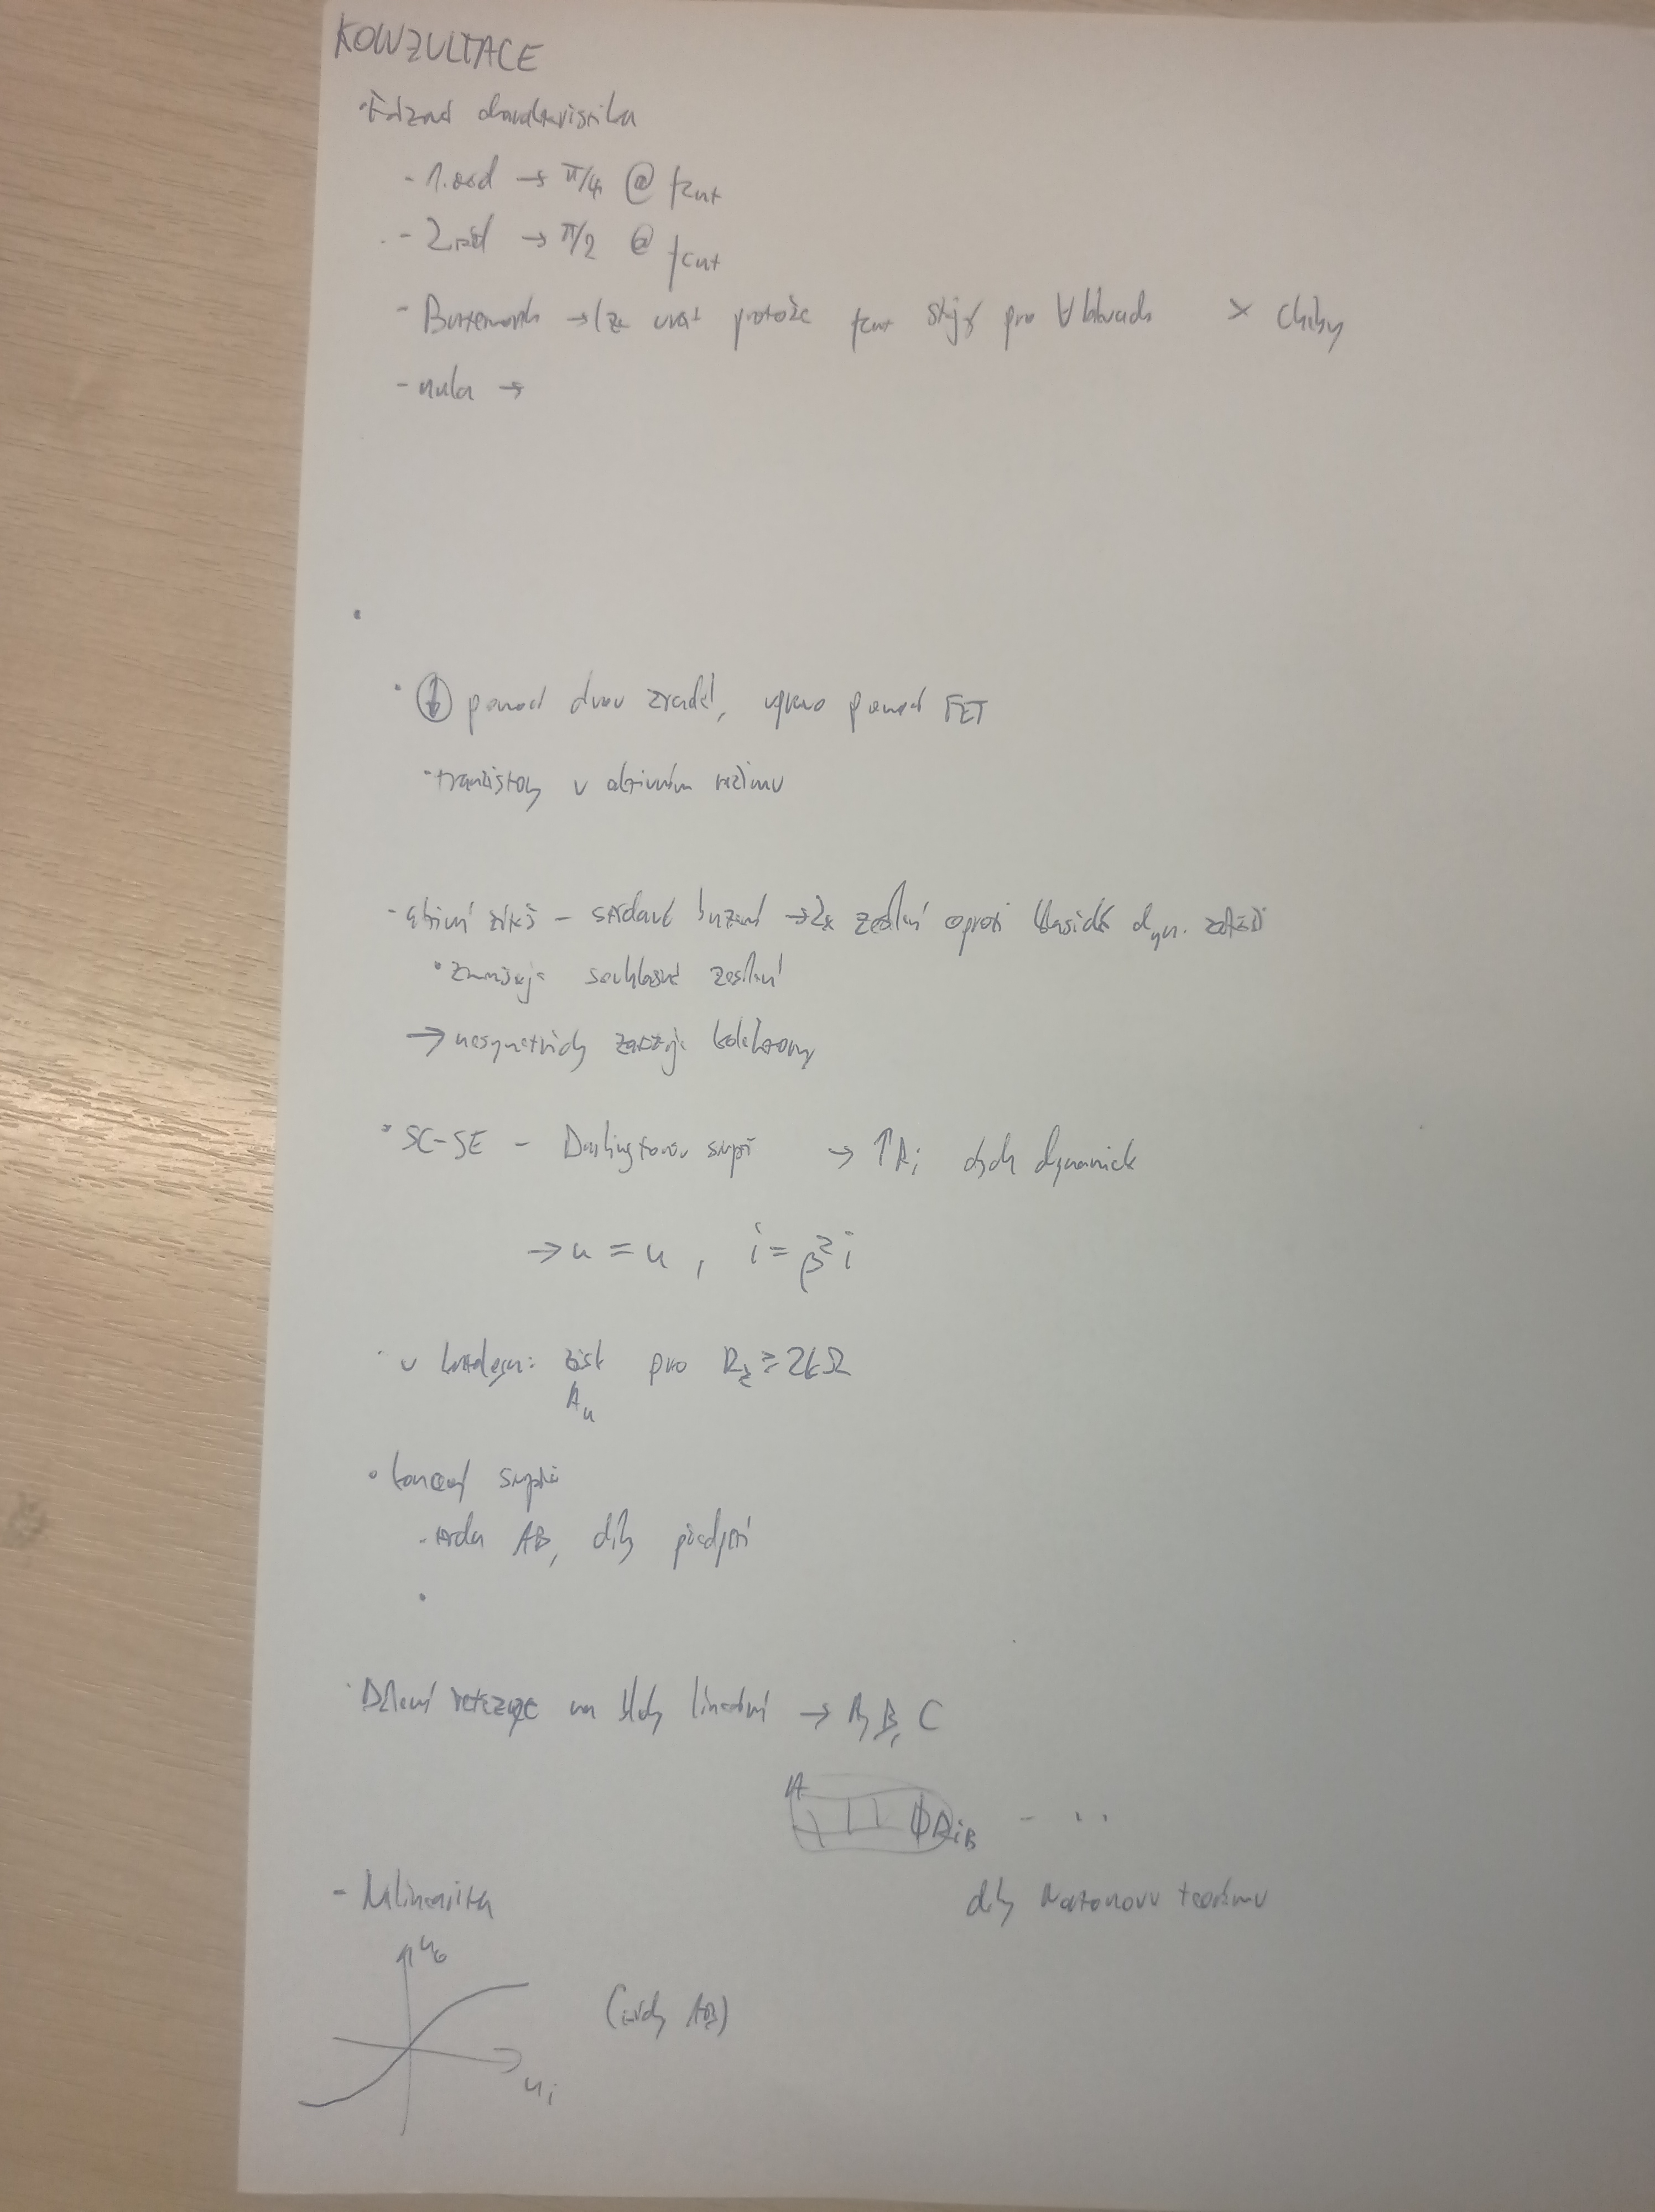 KONZULTACE
• Fázová charakteristika
- 1. řád → π/4 @ fcut
- 2. řád → π/2 @ fcut
- Butterworth → lze určit protože fcut stejný pro ∀ × Chiby
- nula →
• pomocí dvou zrcadel, pomocí FET
• tranzistory v aktivním režimu
- aktivní zátěž - → 2x zesílení oproti klasické dyn. zátěži
• zmenšuje souhlasné zesílení
→ nesymetricky zatěžuje kolektory
• SC-SE - Darlingtonovo → ↑Ri dynamick
→ u = u, i = β² i
• v katalogu: zisk pro Rz ≥ 2kΩ
Au
• koncový stupeň
- třída AB, díky předpětí
• Dělení řetězce na bloky lineární → A, B, C
A RiB - ..
díky Nortonovu teorému
- Nelinearita
uo
(třídy AB)
ui